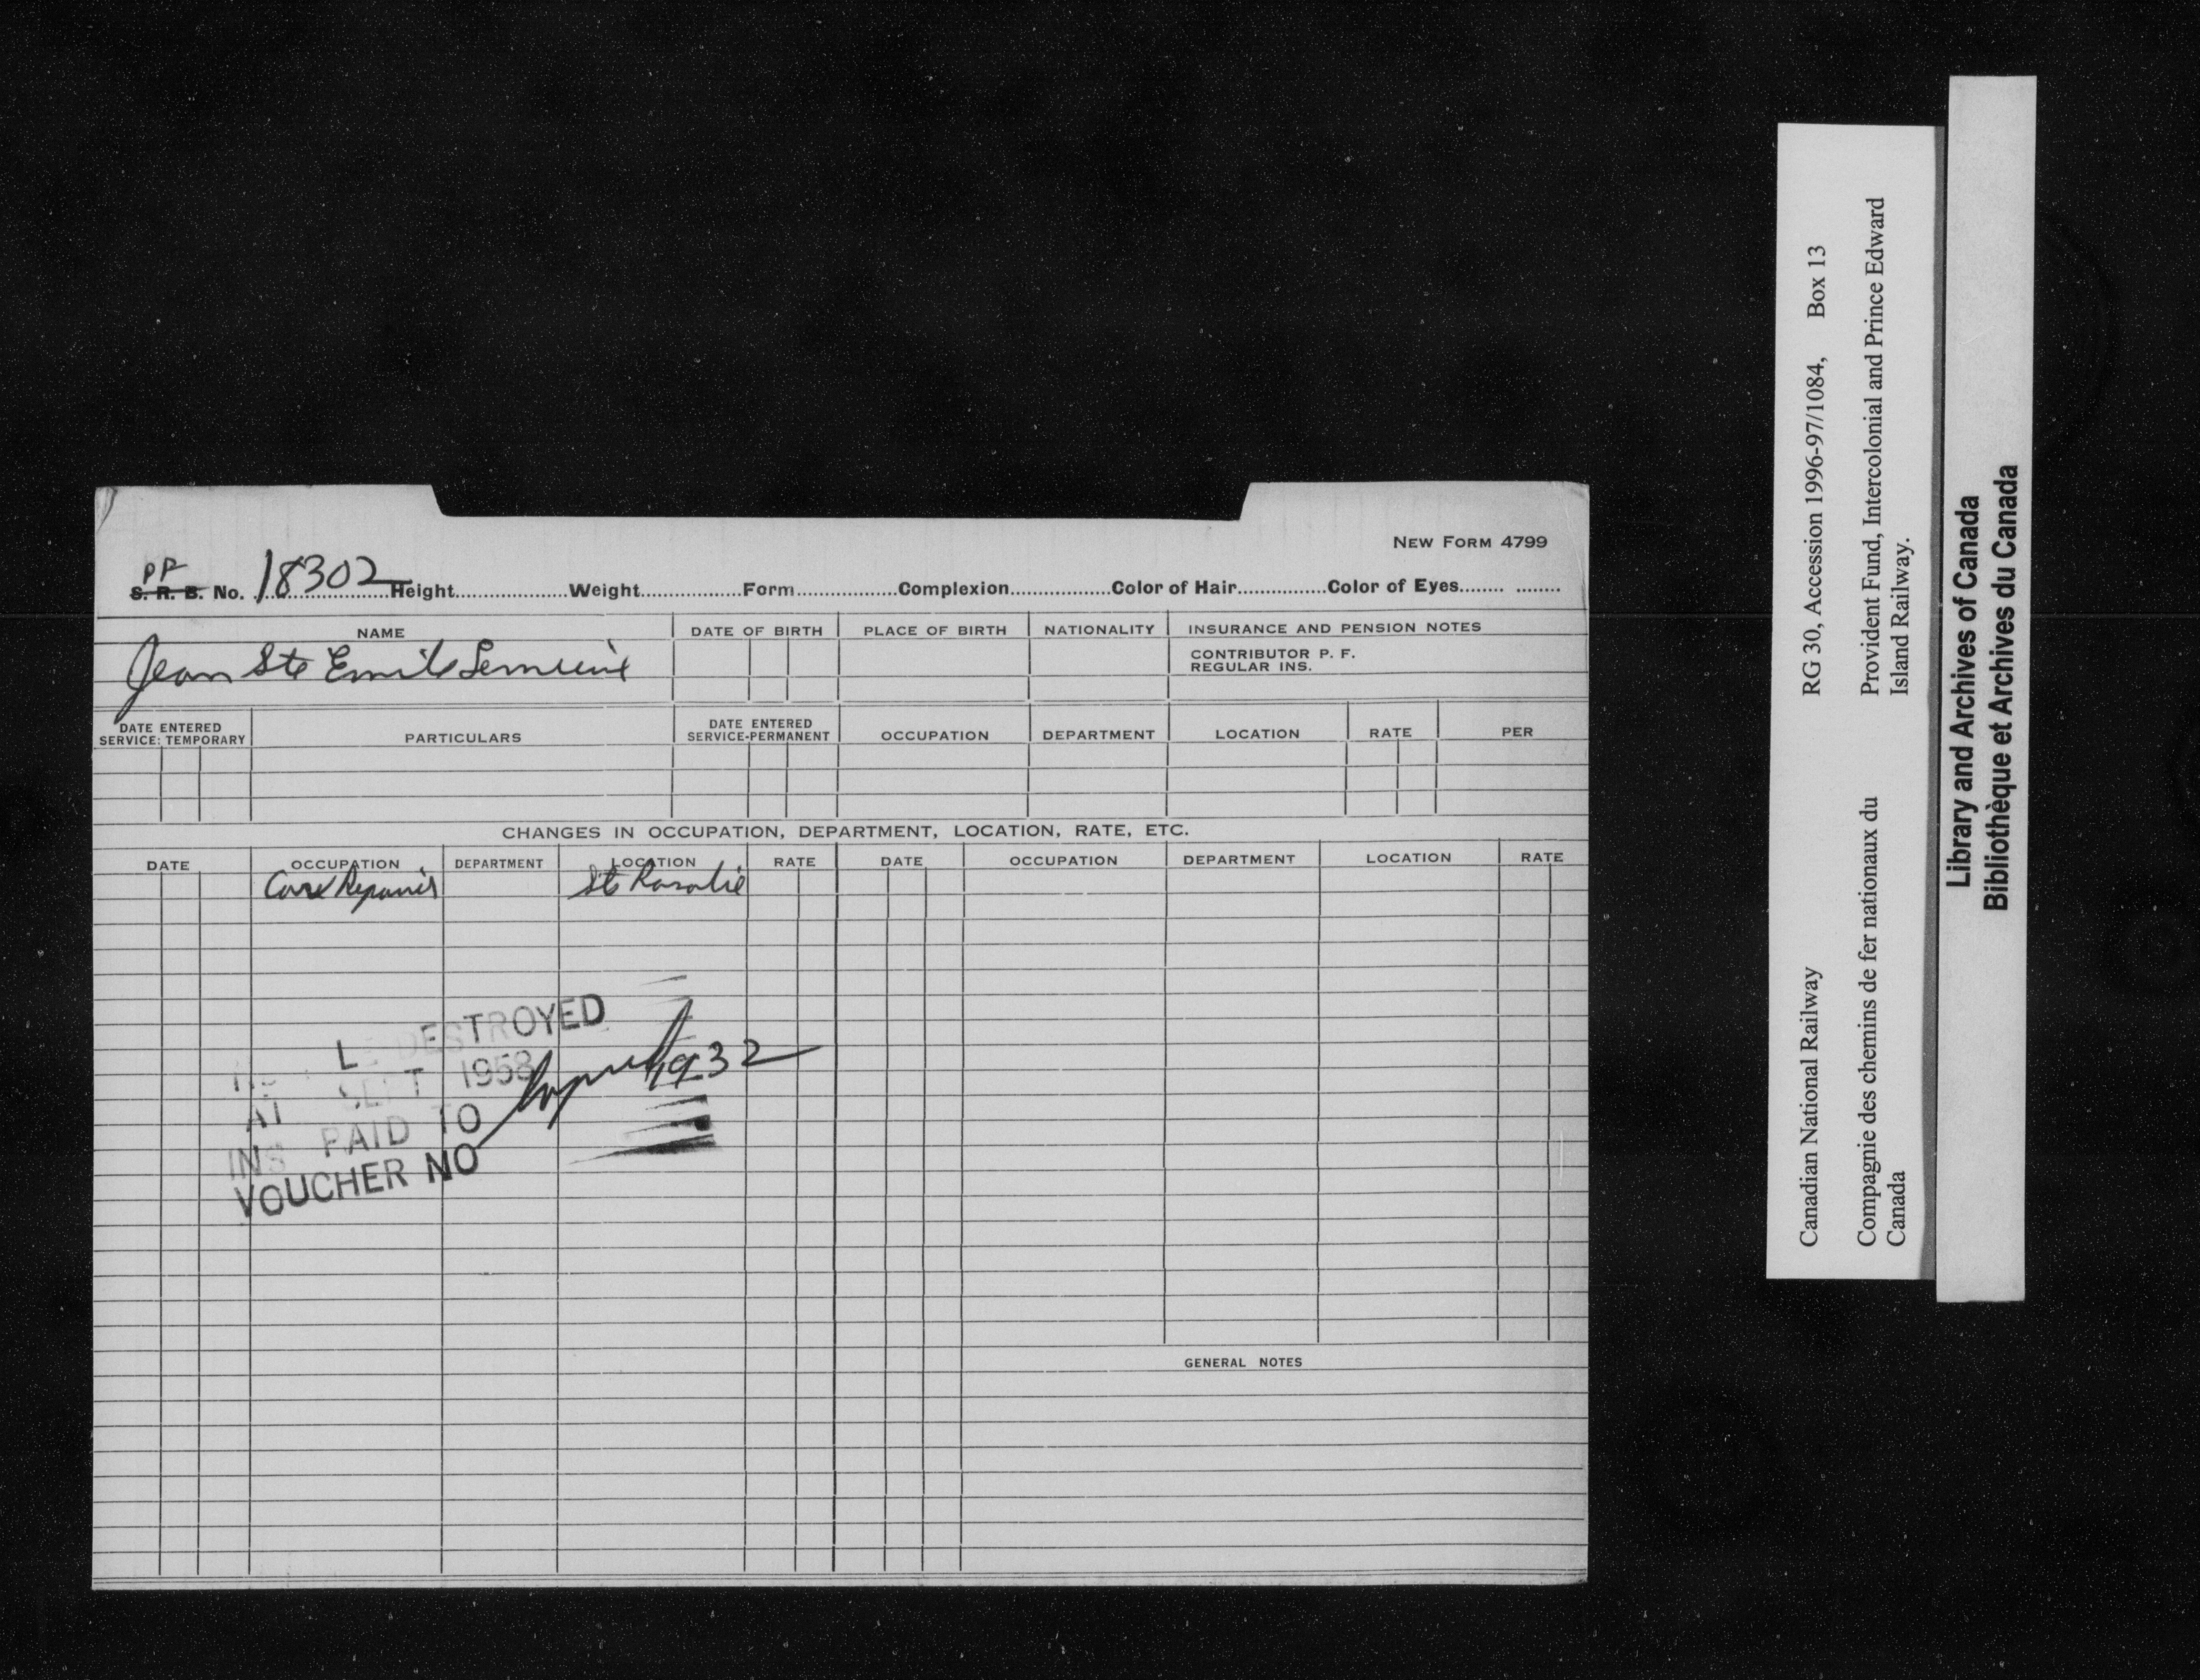 NEW FORM 4799
PF
S. R. B. No. 18302 Height Weight Form Complexion Color of Hair Color of Eyes
NAME DATE OF BIRTH PLACE OF BIRTH NATIONALITY INSURANCE AND PENSION NOTES
Jean Ste Emile
CONTRIBUTOR P. F.
REGULAR INS.
DATE ENTERED SERVICE: TEMPORARY PARTICULARS DATE ENTERED SERVICE-PERMANENT OCCUPATION DEPARTMENT LOCATION RATE PER
CHANGES IN OCCUPATION, DEPARTMENT, LOCATION, RATE, ETC.
DATE OCCUPATION DEPARTMENT LOCATION RATE DATE OCCUPATION DEPARTMENT LOCATION RATE
Car Repair Ste Rosalie
DESTROYED
SEPT 1958
AT
INS PAID TO
VOUCHER NO
1932
GENERAL NOTES
Canadian National Railway RG 30, Accession 1996-97/1084, Box 13
Compagnie des chemins de fer nationaux du Provident Fund, Intercolonial and Prince Edward
Canada Island Railway.
Library and Archives of Canada
Bibliothèque et Archives du Canada